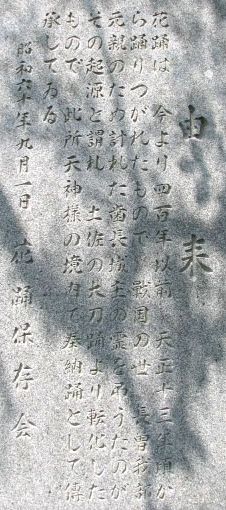 由来
花踊は 今より四百年以前 天正十三年頃か
ら踊りつがれたもので 戦国の世 長曽我部
元親のため討れた酋長城主の霊を弔うたのが
その起源と謂れ 土佐の太刀踊より転化した
もので 此所天神様の境内で奉納踊として傳
承してゐる
昭和六十年九月一日 花踊保存会